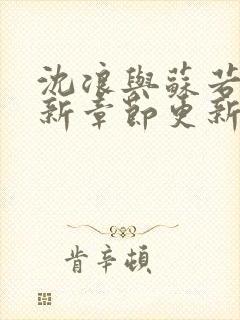 沈浪與蘇若
新章節更新
肯辛頓